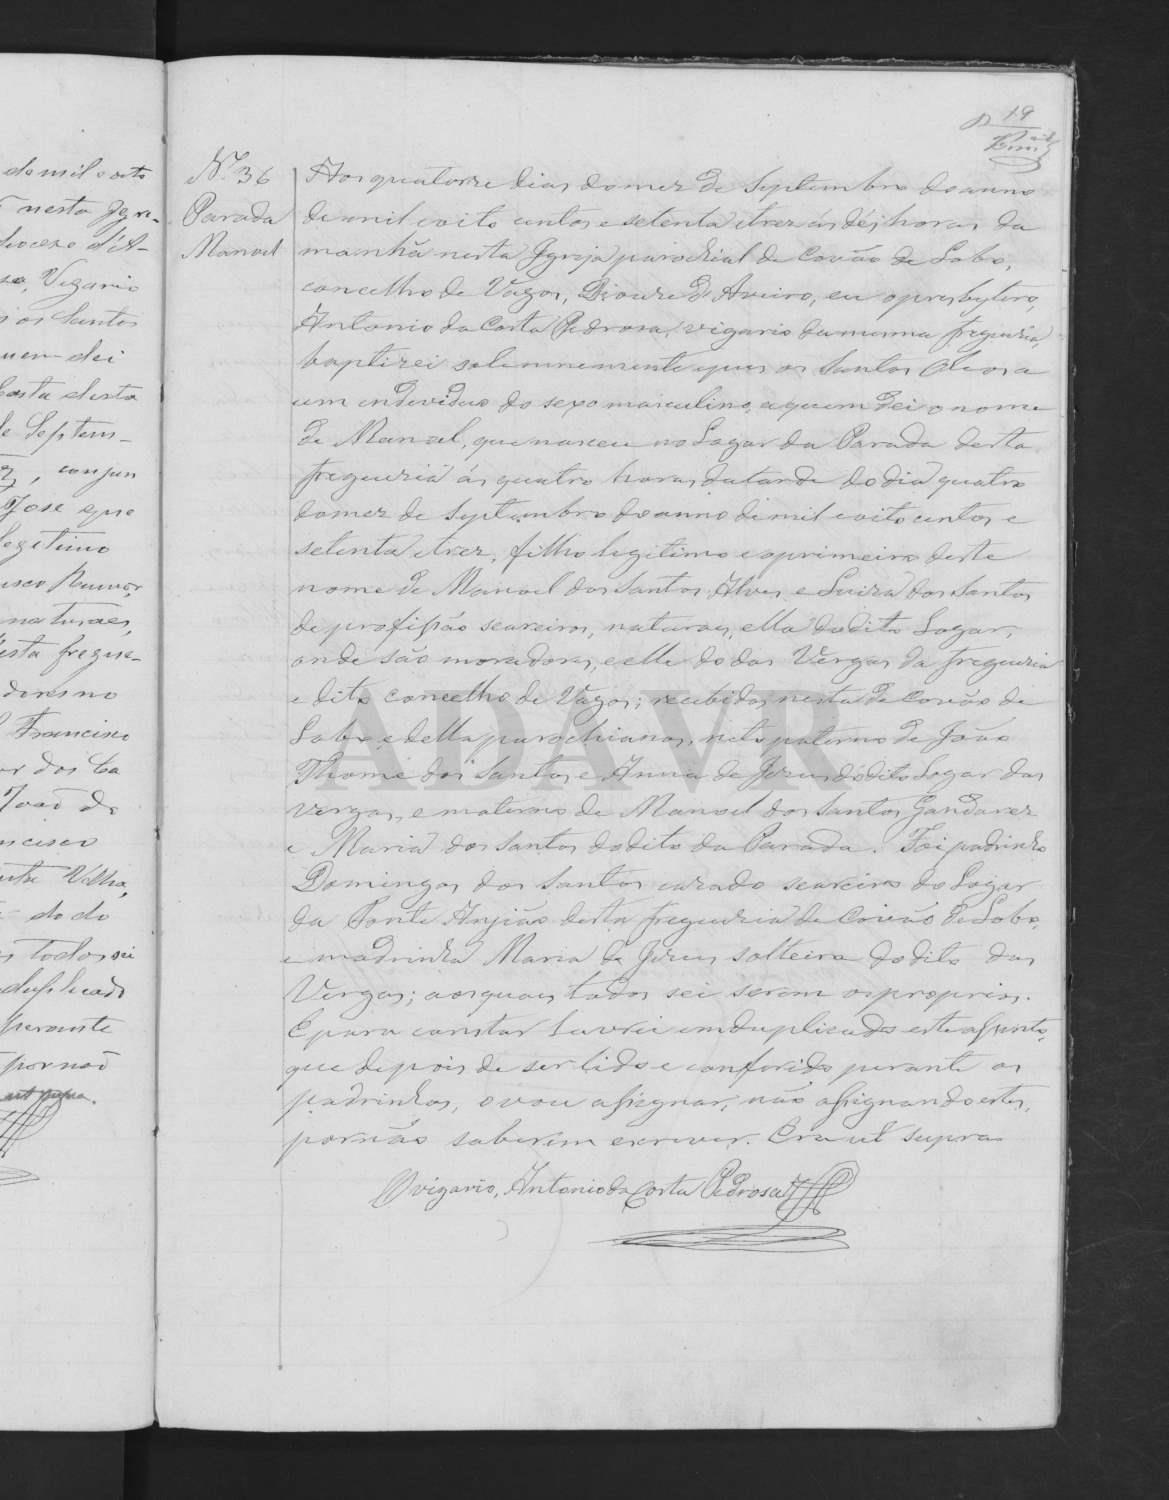 19
do mil e oito
nesta Igre-
diocese d'A-
Vigario
os Santos
quem dei
Costa desta
de Septem-
conjun
Jose que
legitimo
naturaes,
esta fregue-
dores no
Francisco
João da
ncisco
Velha,
do do
todos sei
duplicado
perante
por não
ut supra.
Nº 36
Parada
Manoel
Aos quatorze dias do mez de Septembro do anno
de mil e oito centos e setenta e trez ás dés horas da
manhã nesta Igreja parochial de Covão de Lobo,
concelho de Vagos, Diocese d'Aveiro, eu o presbytero,
Antonio da Costa Pedrosa, vigario da mesma freguezia,
baptizei solemnemente e puz os Santos Oleos a
um individuo do sexo masculino, a quem dei o nome
de Manoel, que nasceu no Logar da Parada desta
freguezia ás quatro horas da tarde do dia quatro
do mez de Septembro do anno de mil e oito centos e
setenta e trez, filho legitimo e o primeiro deste
nome de Manoel dos Santos Alves e Luiza dos Santos
de profissão seareiros, naturaes, ella do dito Logar,
onde são moradores, e elle do das Vergas da freguezia
e dito concelho de Vagos; recebidos nesta de Covão de
Lobo e della parochianos, neto paterno de João
Thomé dos Santos e Anna de Jezus do dito Logar das
Vergas, e materno de Manoel dos Santos Gandarez
e Maria dos Santos do dito da Parada. Foi padrinho
Domingos dos Santos cazado seareiro do Logar
da Fonte Anjião desta freguezia de Covão de Lobo,
e madrinha Maria de Jezus solteira do dito das
Vergas; aos quaes todos sei serem os proprios.
E para constar lavrei em duplicado este assento,
que depois de ser lido e conferido perante os
padrinhos, o vou assignar; não assignando estes,
por não saberem escrever. Era ut supra
O vigario, Antonio da Costa Pedrosa
ADAVR